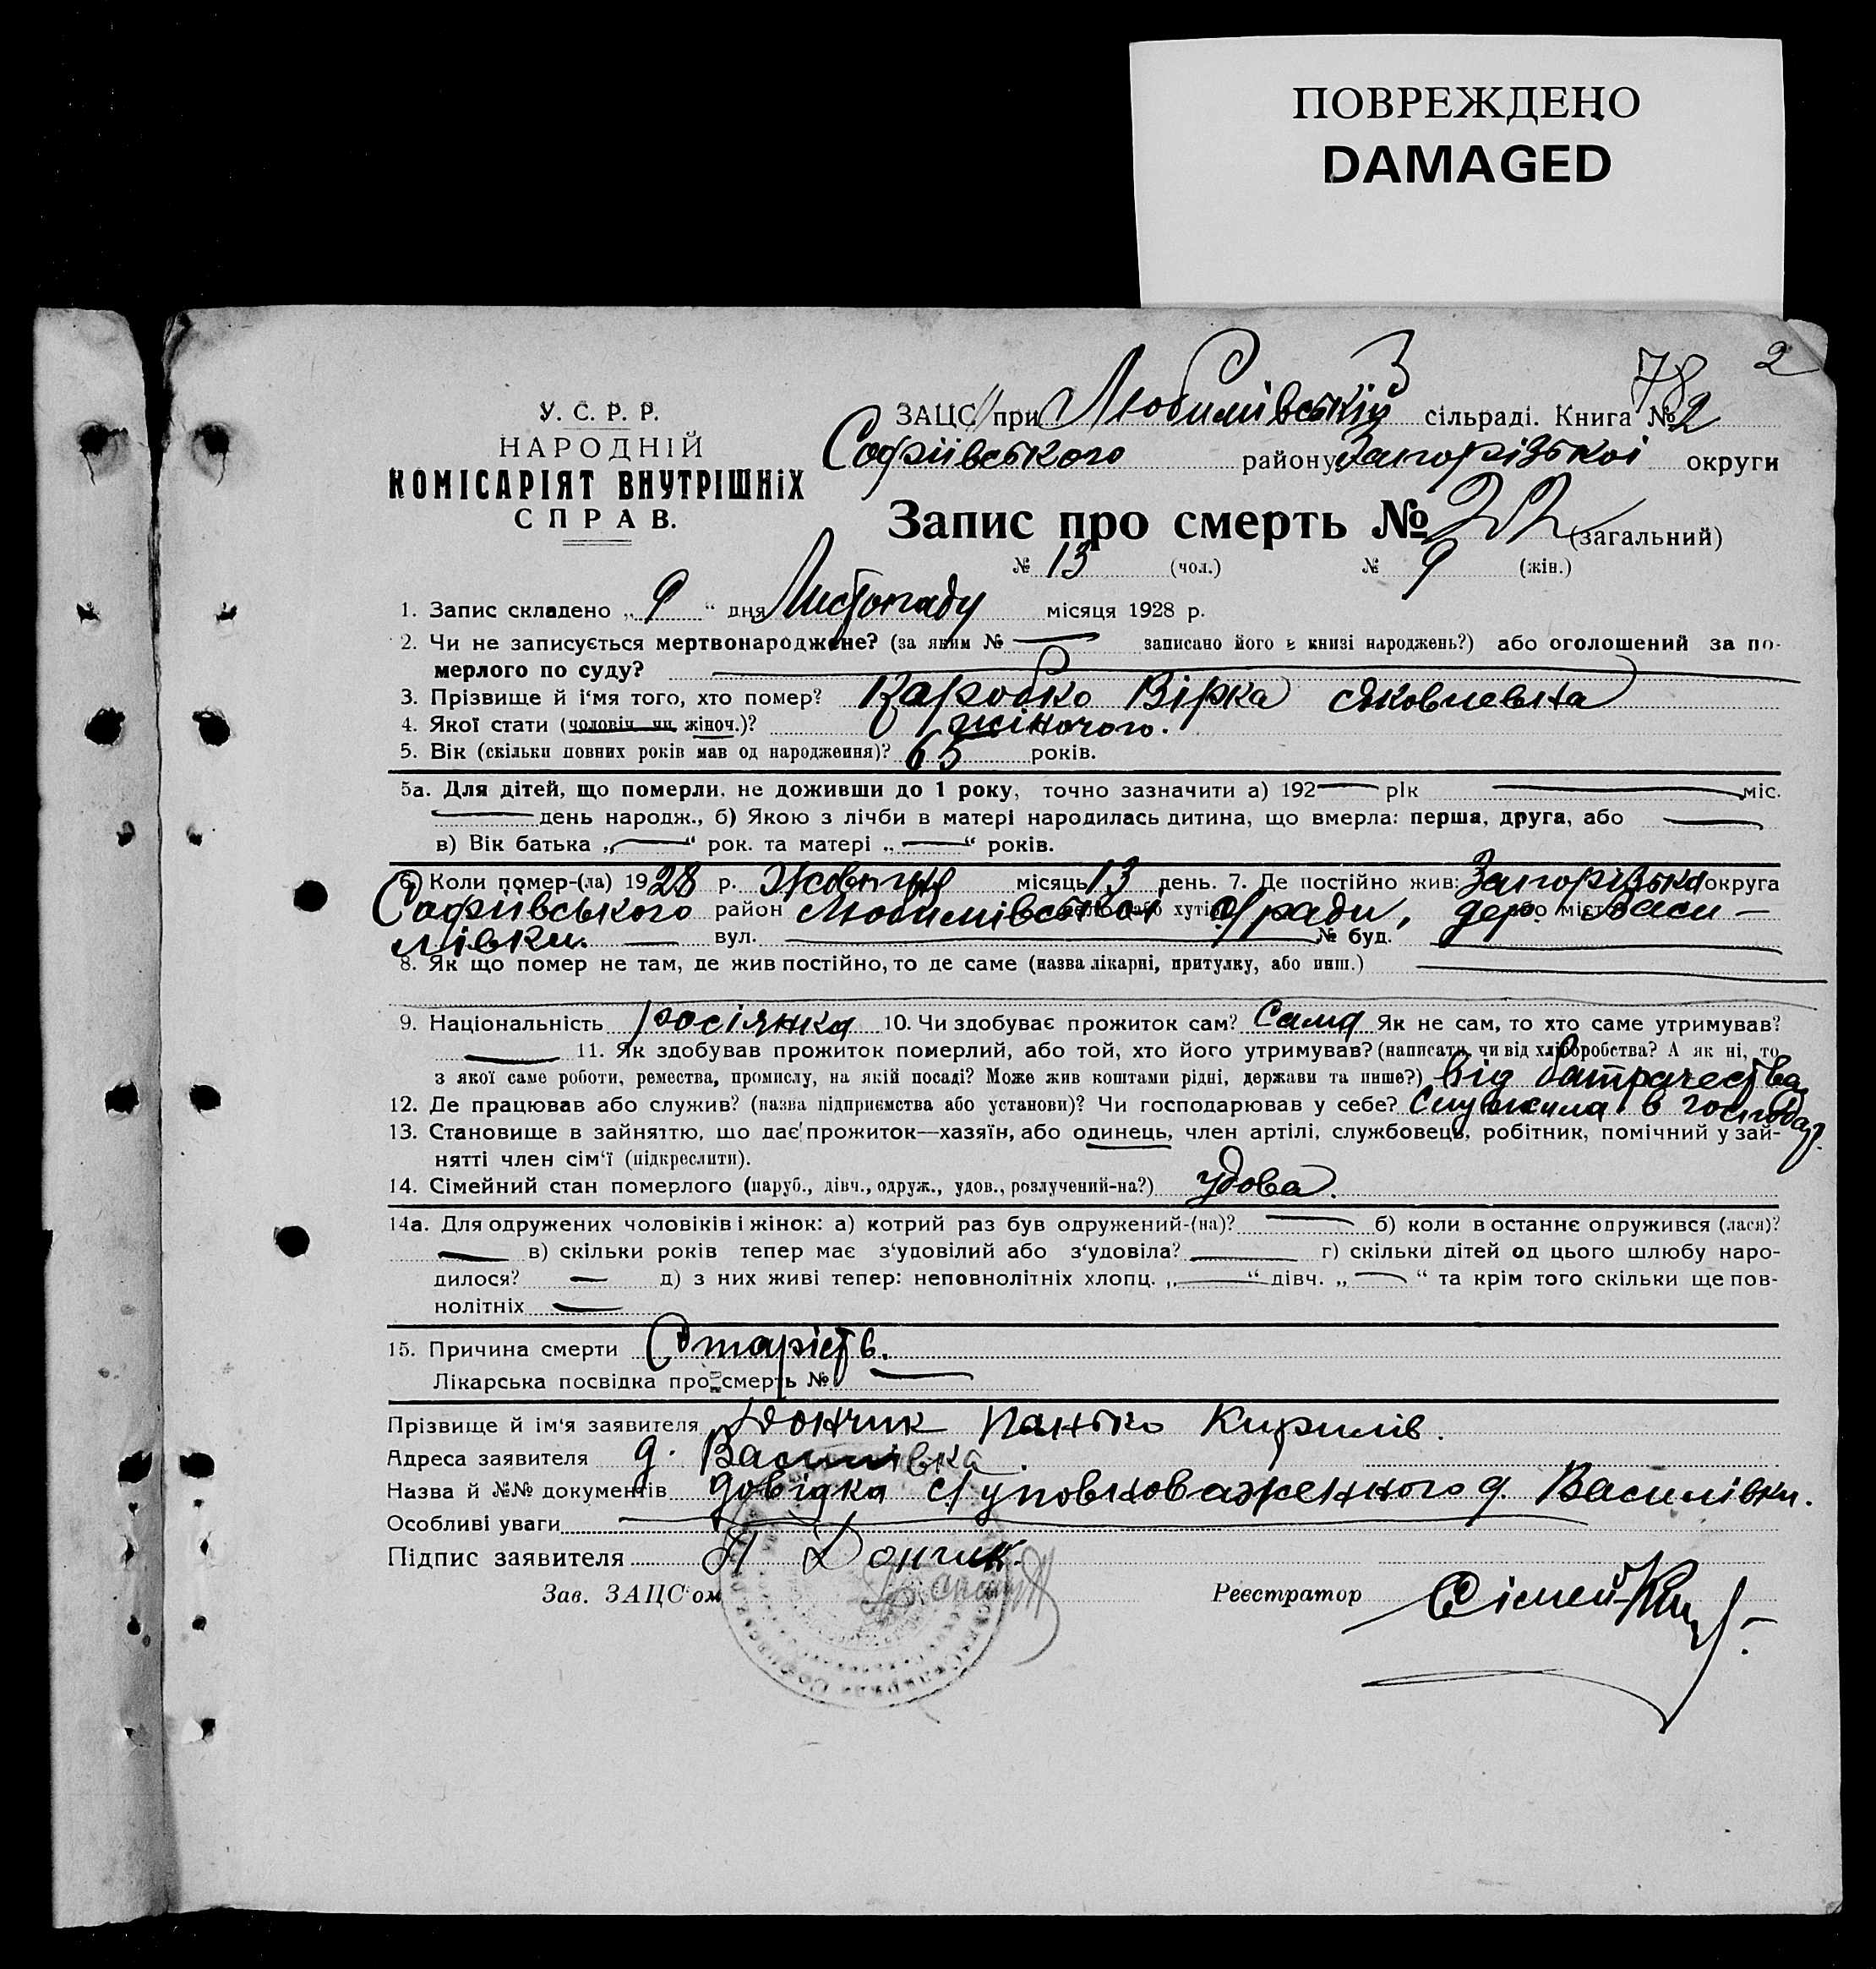 ПОВРЕЖДЕНО
DAMAGED
782 2
У. С. Р. Р.
НАРОДНІЙ
КОМІСАРІЯТ ВНУТРІШНІХ
СПРАВ.
ЗАЦС при Любимівській сільраді. Книга № 2
Софіївського району Запорізької округи
Запис про смерть № 22 (загальний)
№ 13 (чол.) № 9 (жін.)
1. Запис складено „ 9 “ дня Листопаду місяця 1928 р.
2. Чи не записується мертвонароджене? (за яким № — записано його в книзі народжень?) або оголошений за по-
мерлого по суду? —
3. Прізвище й і'мя того, хто помер? Каробко Вірка Яковлевна
4. Якої стати (чоловіч. чи жіноч.)? жіночого.
5. Вік (скільки повних років мав од народження)? 65 років.
5а. Для дітей, що померли, не доживши до 1 року, точно зазначити а) 192— рік — міс.
— день народж., б) Якою з лічби в матері народилась дитина, що вмерла: перша, друга, або —
в) Вік батька „—“ рок. та матері „—“ років.
6. Коли помер-(ла) 1928 р. Жовтня місяць 13 день. 7. Де постійно жив: Запорізька округа
Софіївського район Любимівської с/ради, дер. Васи-
лівки. — вул. — № буд. —
8. Як що помер не там, де жив постійно, то де саме (назва лікарні, притулку, або инш.) —
9. Національність росіянка 10. Чи здобуває прожиток сам? Сама Як не сам, то хто саме утримував?
— 11. Як здобував прожиток померлий, або той, хто його утримував? (написати, чи від хліборобства? А як ні, то
з якої саме роботи, ремества, промислу, на якій посаді? Може жив коштами рідні, держави та инше?) Від батрачества
12. Де працював або служив? (назва підприємства або установи)? Чи господарював у себе? Служила в господар.
13. Становище в зайняттю, що дає прожиток—хазяїн, або одинець, член артілі, службовець, робітник, помічний у зай-
нятті член сім'ї (підкреслити).
14. Сімейний стан померлого (паруб., дівч., одруж., удов., розлучений-на?) удова.
14а. Для одружених чоловіків і жінок: а) котрий раз був одружений-(на)? — б) коли в останнє одружився (лася)?
— в) скільки років тепер має з'удовілий або з'удовіла? — г) скільки дітей од цього шлюбу наро-
дилося? — д) з них живі тепер: неповнолітніх хлопц. „—“ дівч. „—“ та крім того скільки ще пов-
нолітніх —
15. Причина смерти Старість.
Лікарська посвідка про смерть № —
Прізвище й ім'я заявителя Дончик Панько Кирилів.
Адреса заявителя д. Василівка
Назва й №№ документів довідка с/уповноваженного д. Василівки.
Особливі уваги —
Підпис заявителя П Дончик.
Зав. ЗАЦС'ом Реєстратор